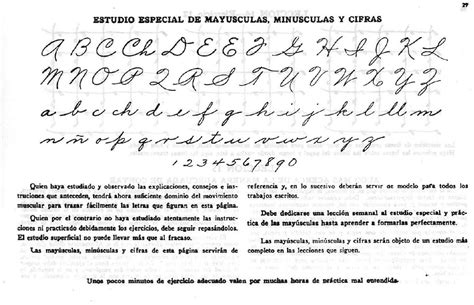 29
ESTUDIO ESPECIAL DE MAYUSCULAS, MINUSCULAS Y CIFRAS
A B C Ch D E F G H I J K L
M N O P Q R S T U V W X Y Z
a b c ch d e f g h i j k l ll m
n ñ o p q r s t u v w x y z
1 2 3 4 5 6 7 8 9 0
Quien haya estudiado y observado las explicaciones, consejos e ins-
trucciones que anteceden, tendrá ahora suficiente dominio del movimiento
muscular para trazar fácilmente las letras que figuran en esta página.
Quien por el contrario no haya estudiado atentamente las instruc-
ciones ni practicado debidamente los ejercicios, debe seguir repasándolos.
El estudio superficial no puede llevar más que al fracaso.
Las mayúsculas, minúsculas y cifras de esta página servirán de
referencia y, en lo sucesivo deberán servir de modelo para todos los
trabajos escritos.
Debe dedicarse una lección semanal al estudio especial y prác-
tica de las mayúsculas hasta aprender a formarlas perfectamente.
Las mayúsculas, minúsculas y cifras serán objeto de un estudio más
completo en las lecciones que siguen.
Unos pocos minutos de ejercicio adecuado valen por muchas horas de práctica mal entendida.